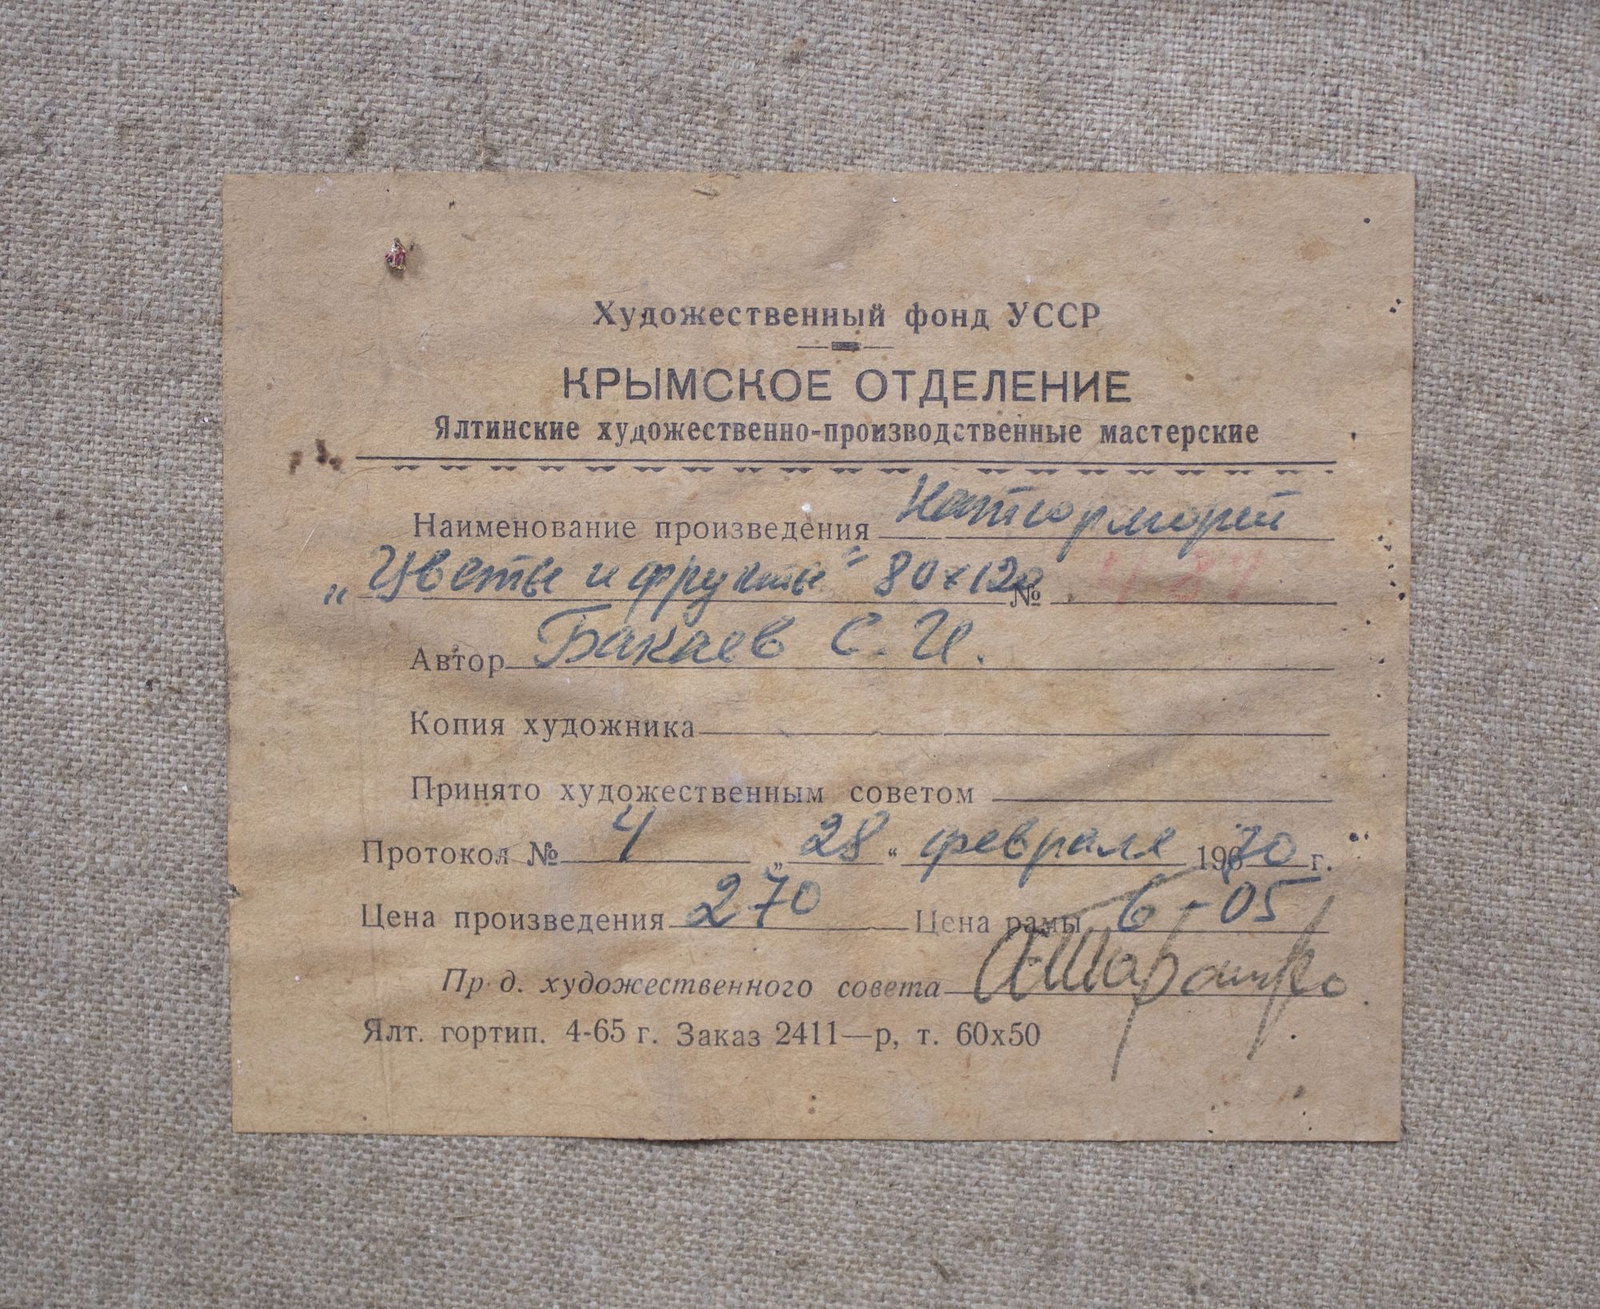 Художественный фонд УССР
КРЫМСКОЕ ОТДЕЛЕНИЕ
Ялтинские художественно-производственные мастерские
Наименование произведения Натюрморт
„Цветы и фрукты" 80х120 №
Автор Бакаев С. И.
Копия художника
Принято художественным советом
Протокол № 4 „28" февраля 1970 г.
Цена произведения 270 Цена рамы 6-05
Пр д. художественного совета
Ялт. гортип. 4-65 г. Заказ 2411—р, т. 60х50